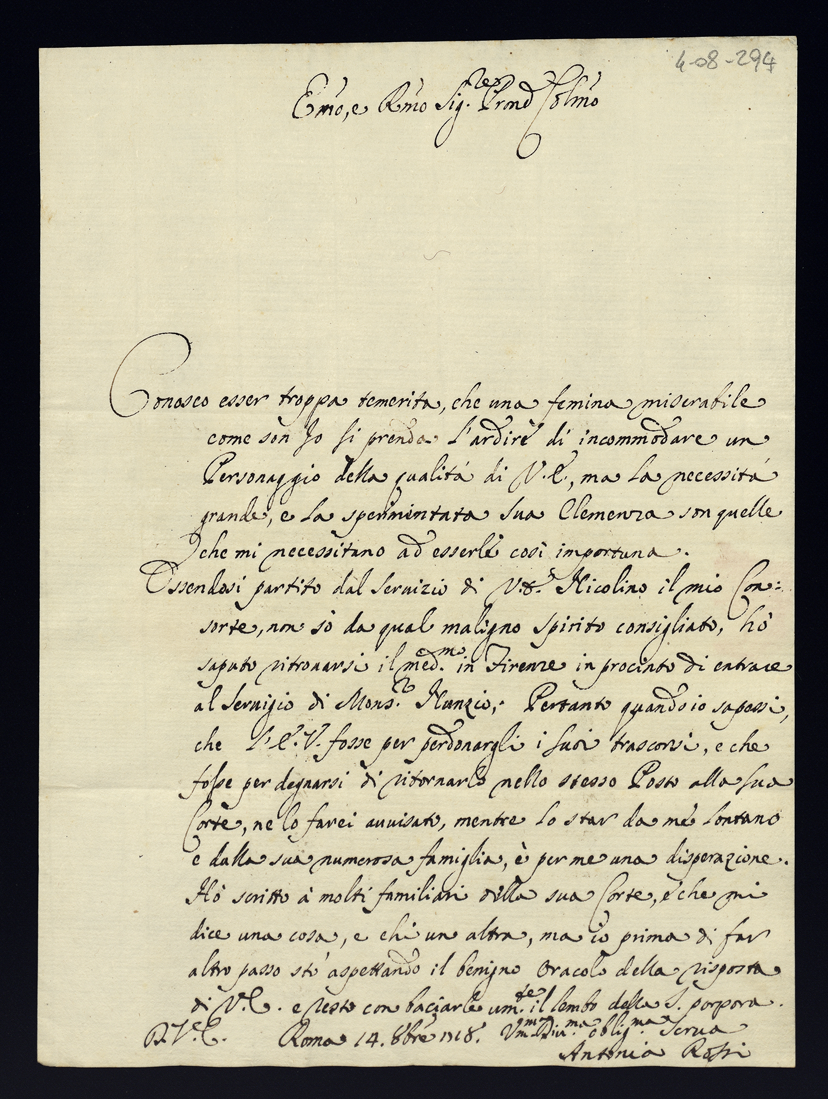 4-08-294
Em̃o, e Rm̃o Sig.re Prnd Colm̃o
Conosco esser troppa temerita, che una femina miserabile
come son Io si prenda l'ardire di incommodare un
Personaggio della qualitá di V.E., ma la necessitá
grande, e la sperimintata sua Clemenza son quelle
che mi necessitano ad esserle così importuna.
Essendosi partito dal servizio di V.E. Nicolino il mio Con=
sorte, non sò da qual maligno spirito consigliato, hò
saputo ritrovarsi il med.mo in Firenze in procinto di entrare
al servizio di Mons.re Nunzio; Pertanto quando io sapessi,
che l'E.V. fosse per perdonargli i suoi trascorsi, e che
fosse per degnarsi di ritornarlo nello stesso Posto alla sua
Corte, ne lo farei avvisato, mentre lo star da mè lontano
e dalla sua numerosa famiglia, è per me una disperazione.
Hò scritto à molti familiari della sua Corte, e che mi
dice una cosa, e chi un altra, ma io prima di far
altro passo stò aspettando il benigno Oracolo della risposta
di V.E. e resto con baciarle um.te il lembo della S. porpora.
D. V. E. Roma 14. 8bre 1718. Um.ma Div.ma oblig.ma Serva
Antonia Rossi